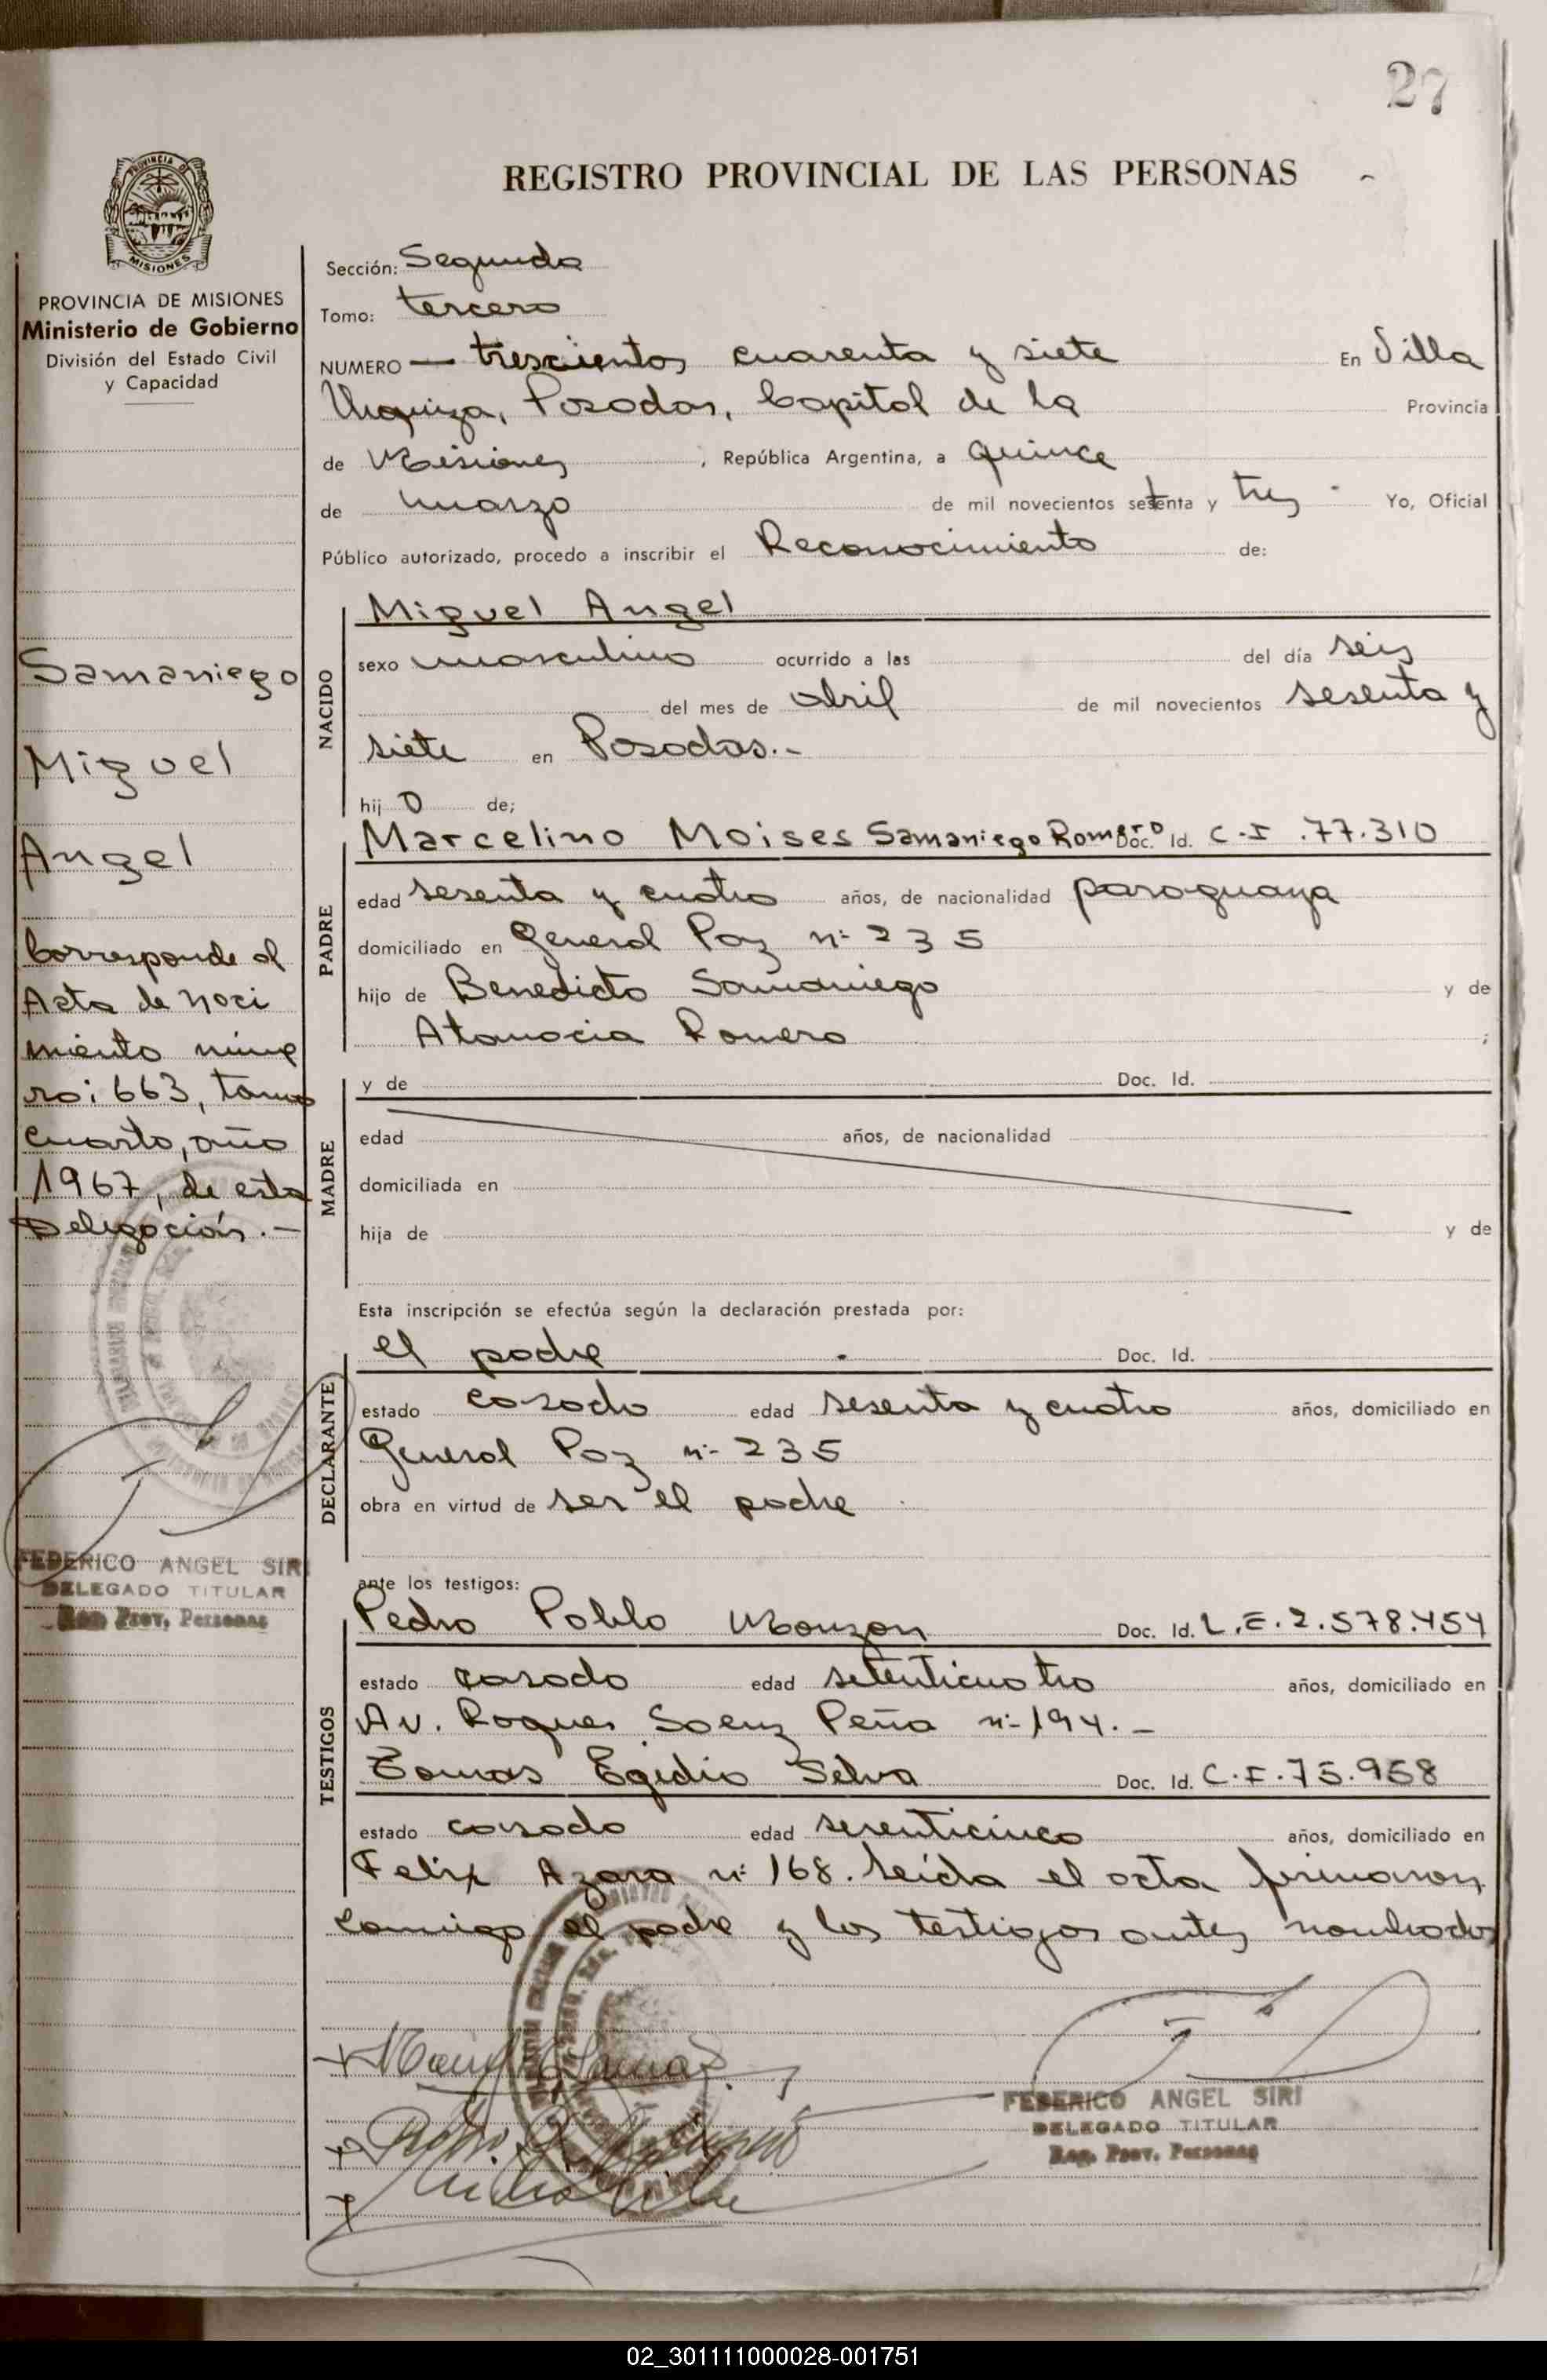 27
REGISTRO PROVINCIAL DE LAS PERSONAS
PROVINCIA DE MISIONES
MISIONES
PROVINCIA DE MISIONES
Ministerio de Gobierno
División del Estado Civil
y Capacidad
Samaniego
Miguel
Angel
Corresponde al
Acta de naci
miento núme
ro: 663, tomo
cuarto, año
1967, de esta
Delegación.-
FEDERICO ANGEL SIRI
DELEGADO TITULAR
Reg. Prov. Personas
Sección: Segunda
Tomo: tercero
NUMERO — trescientos cuarenta y siete En Villa
Urquiza, Posadas, Capital de la Provincia
de Misiones, República Argentina, a quince
de marzo de mil novecientos setenta y tres Yo, Oficial
Público autorizado, procedo a inscribir el Reconocimiento de:
NACIDO
Miguel Angel
sexo masculino ocurrido a las del día seis
del mes de abril de mil novecientos sesenta y
siete en Posadas.-
hijo de;
PADRE
Marcelino Moises Samaniego Romero Doc. Id. C.I .77.310
edad sesenta y cuatro años, de nacionalidad paraguaya
domiciliado en General Paz nº 235
hijo de Benedicto Samaniego y de
Atanacia Romero ;
MADRE
y de Doc. Id.
edad años, de nacionalidad
domiciliada en
hija de y de
Esta inscripción se efectúa según la declaración prestada por:
DECLARANTE
el padre Doc. Id.
estado casado edad sesenta y cuatro años, domiciliado en
General Paz nº 235
obra en virtud de ser el padre
ante los testigos:
TESTIGOS
Pedro Pablo Monzon Doc. Id. L.E.2.578.454
estado casado edad setenticuatro años, domiciliado en
Av. Roques Saenz Peña nº 194.-
Tomas Egidio Selva Doc. Id. C.I.75.958
estado casado edad sesenticinco años, domiciliado en
Felix Azara nº 168. Leída el acta firmaron
conmigo el padre y los testigos antes nombrados
FEDERICO ANGEL SIRI
DELEGADO TITULAR
Reg. Prov. Personas
02_301111000028-001751